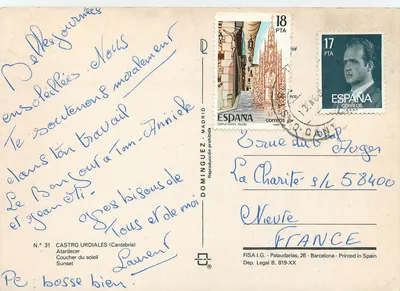 Belles journées
ensoleillées. Nous
Te soutenons moralement
dans ton travail
Le Bonjour à Tom-Annick
et Jean
Gros bisous de
Tous et de moi
Laurent
PC: bosse bien.
N.º 31 CASTRO URDIALES (Cantabria)
Atardecer
Coucher du soleil
Sunset
DOMINGUEZ - MADRID
Reproducción prohibida
18
PTA
ESPAÑA
correos
17
PTA
ESPAÑA
CORREOS
rue du
Auger
La Charité s/L 58400
Nièvre
FRANCE
FISA I.G. - Palaudarias, 26 - Barcelona - Printed in Spain
Dep. Legal B. 819-XX